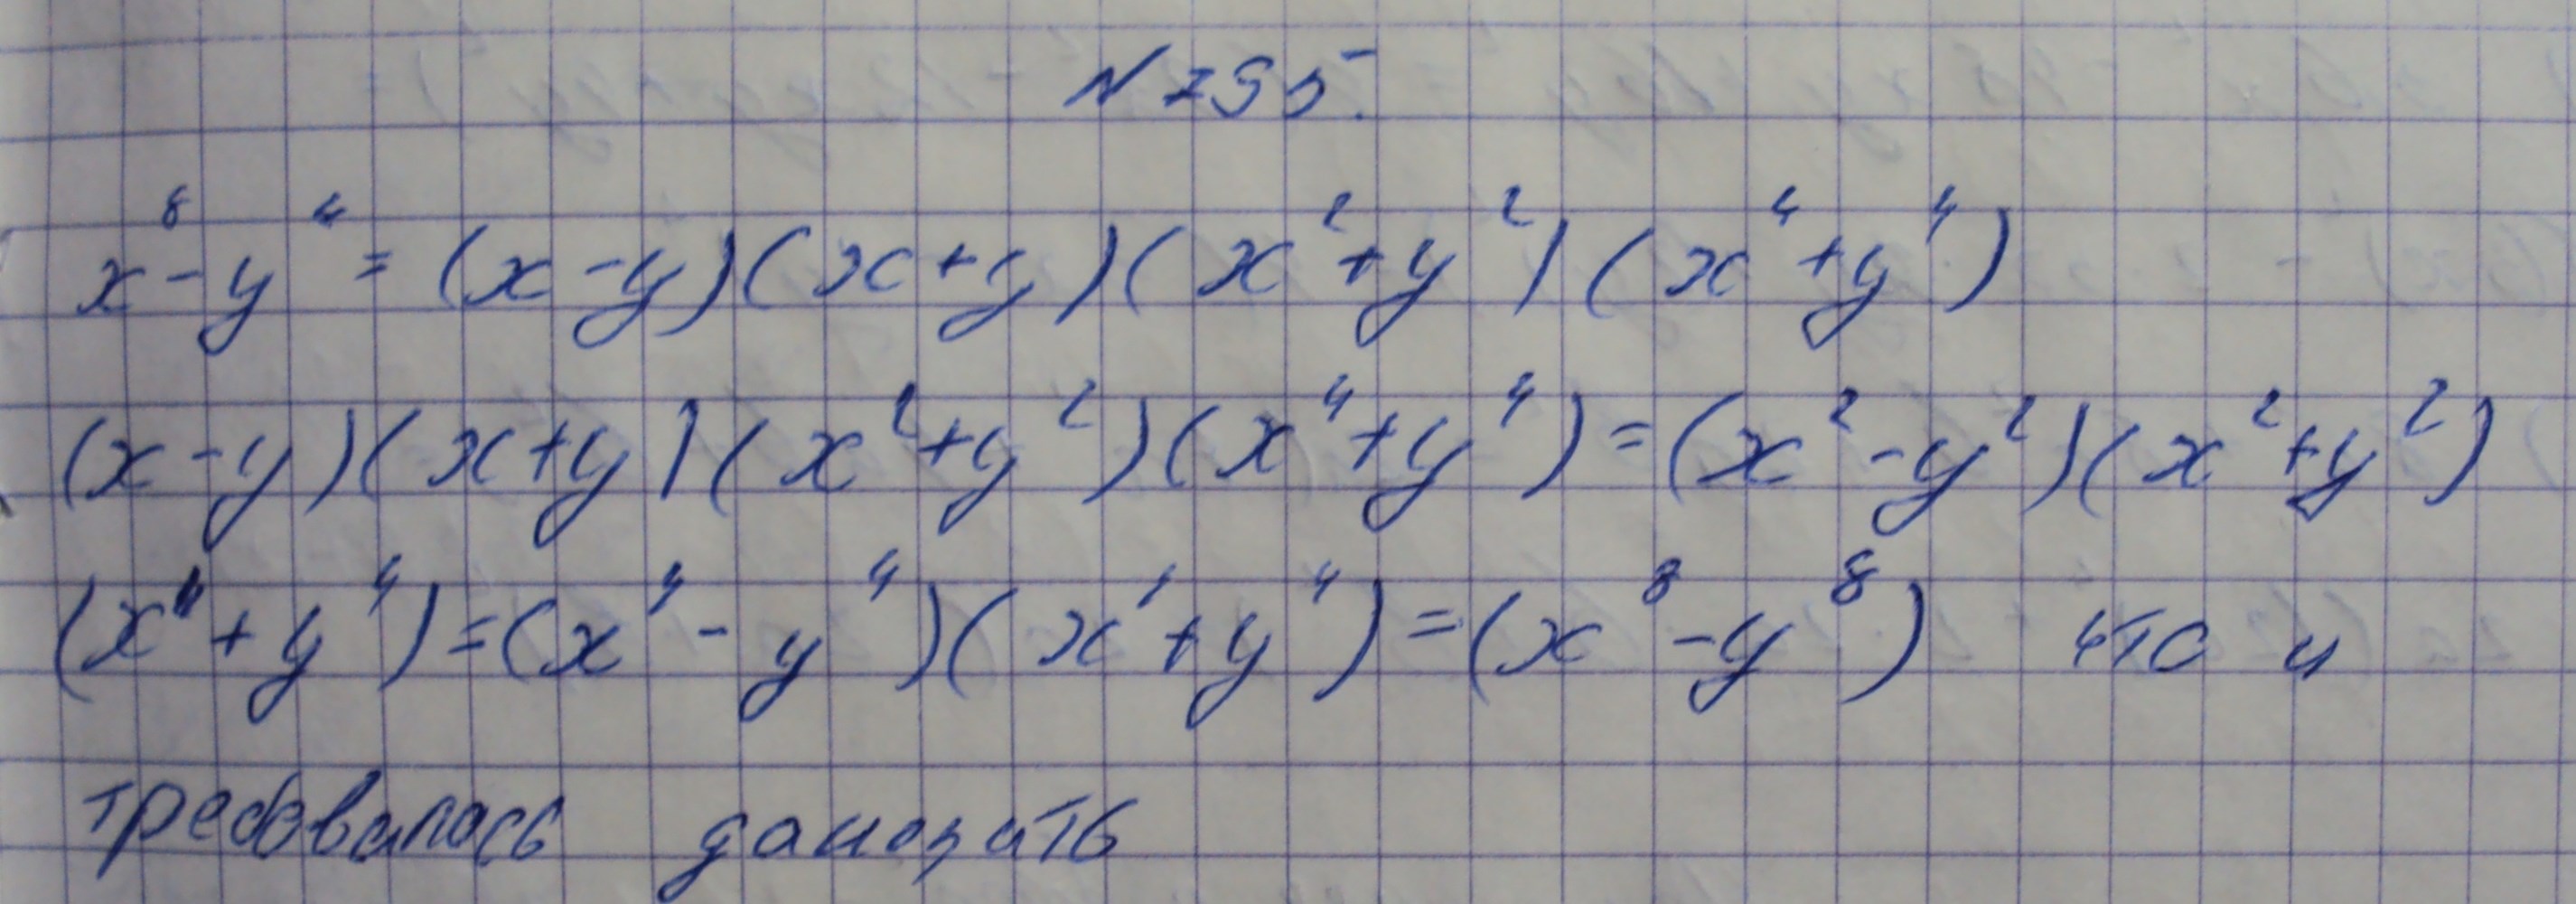 N 795.
x⁸ - y⁴ = (x - y)(x + y)(x² + y²)(x⁴ + y⁴)
(x - y)(x + y)(x² + y²)(x⁴ + y⁴) = (x² - y²)(x² + y²)
(x⁴ + y⁴) = (x⁴ - y⁴)(x⁴ + y⁴) = (x⁸ - y⁸) что и
требовалось доказать